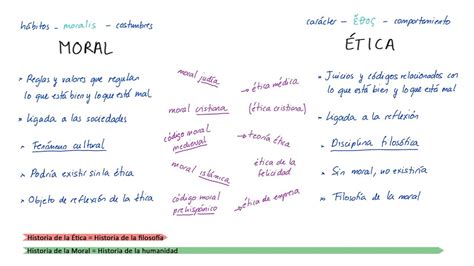 hábitos - moralis - costumbres
MORAL
• Reglas y valores que regulan
lo que está bien y lo que está mal
• Ligada a las sociedades
• Fenómeno cultural
• Podría existir sin la ética
• Objeto de reflexión de la ética
moral judía
moral cristiana
código moral
medieval
moral islámica
código moral
prehispánico
ética médica
(ética cristiana)
teoría ética
ética de la
felicidad
ética de empresa
carácter - ἔθος - comportamiento
ÉTICA
• Juicios y códigos relacionados con
lo que está bien y lo que está mal
• Ligada a la reflexión
• Disciplina filosófica
• Sin moral, no existiría
• Filosofía de la moral
Historia de la Ética = Historia de la filosofía
Historia de la Moral = Historia de la humanidad